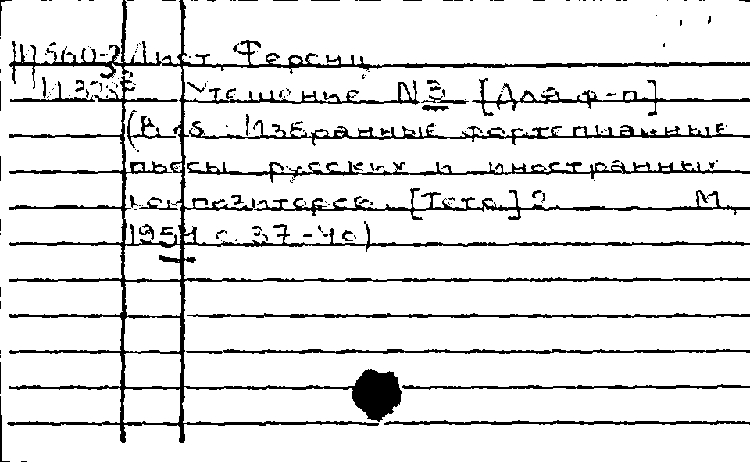 Лист, Ференц
Утешение N 3 [Для ф-п]
(В сб. Избранные фортепианные
пьесы русских и иностранных
композиторов [Тетр.] 2. М.,
1954 с. 37-40)